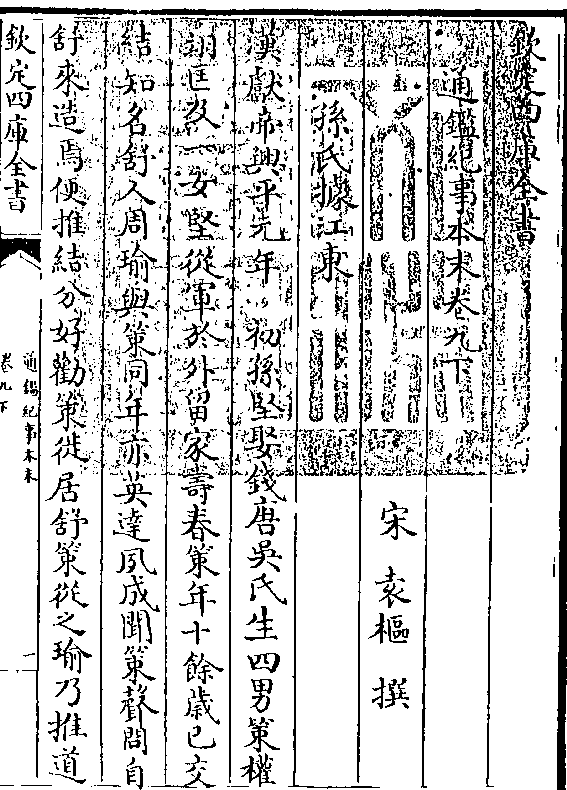 欽定四庫全書
通鑑紀事本末卷九下
宋 袁樞 撰
孫氏據江東
漢獻帝興平元年初孫堅娶錢唐吳氏生四男策權
翊匡及一女堅從軍於外留家壽春策年十餘歲已交
結知名舒人周瑜與策同年亦英達夙成聞策聲問自
舒來造焉便推結分好勸策徙居舒策從之瑜乃推道
欽定四庫全書
通鑑紀事本末
卷九下
一